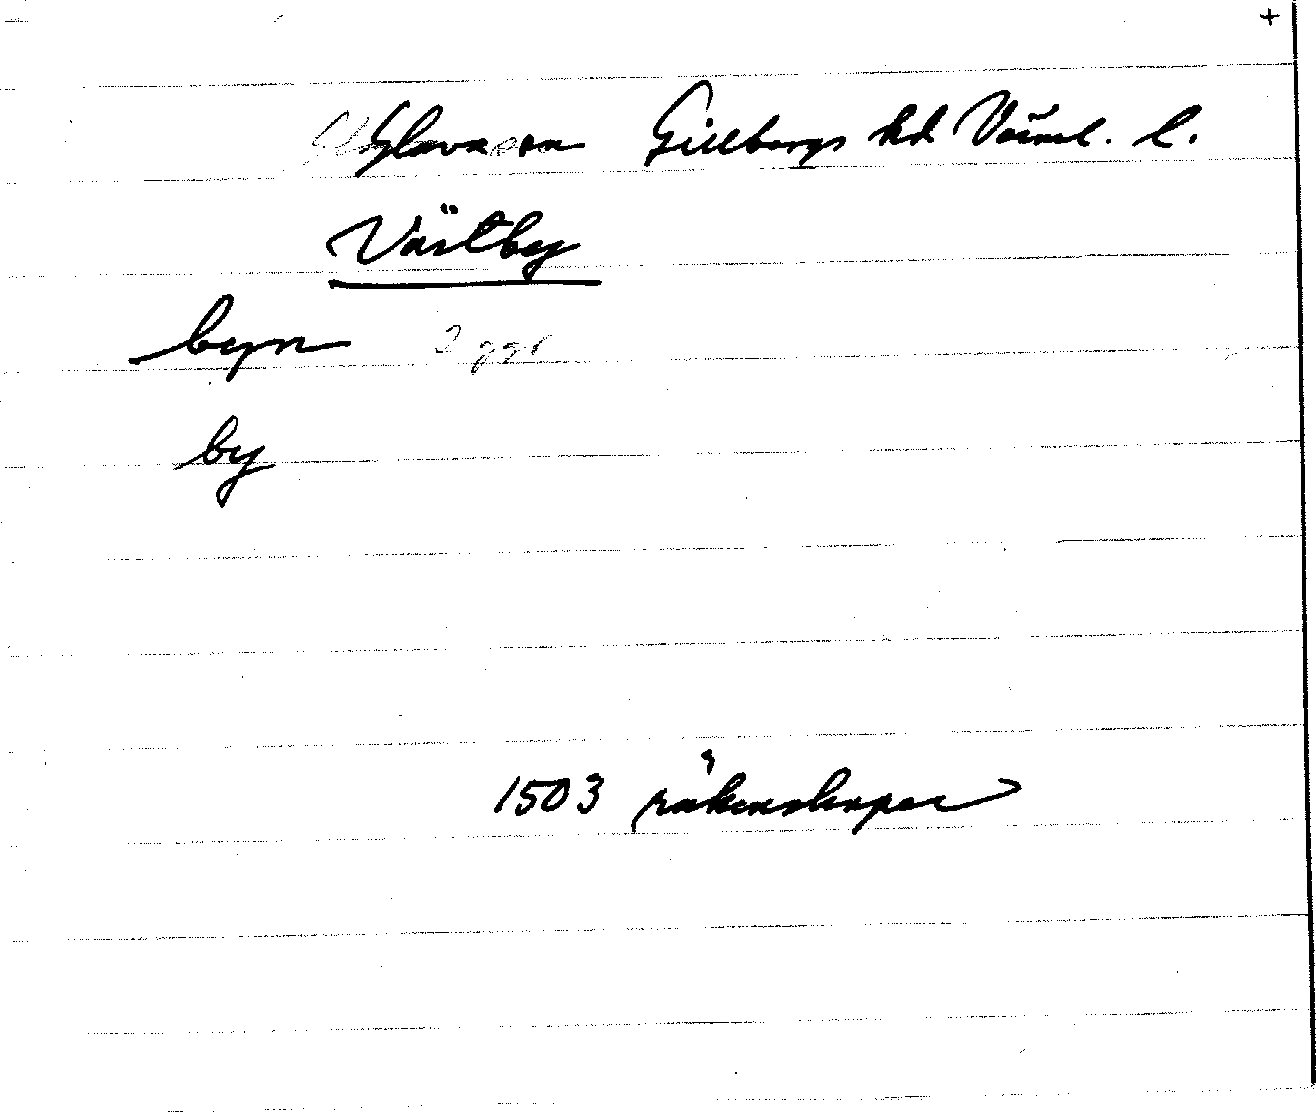 +
Glava sn Gillbergs hd Värml. l.
Västby
byn 2 ggr
by
1503 räkenskaper